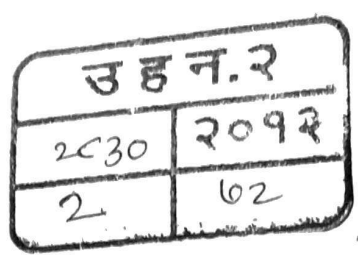 उहन.२
2८30 २०१२
2 ७2